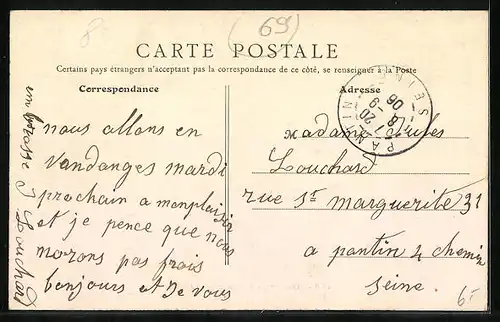 8-
(69)
CARTE POSTALE
Certains pays étrangers n'acceptent pas la correspondance de ce côté, se renseigner à la Poste
Correspondance
nous allons en
vandanges mardi
prochain a monplaisir
et je pence que nous
norons pas frois
bonjours et Je vous
embrasse J Louchard
Adresse
PANTIN
SEINE
20-9
06
Madame Jules
Louchard
rue St marguerite 31
a pantin 4 chemin
Seine.
6-